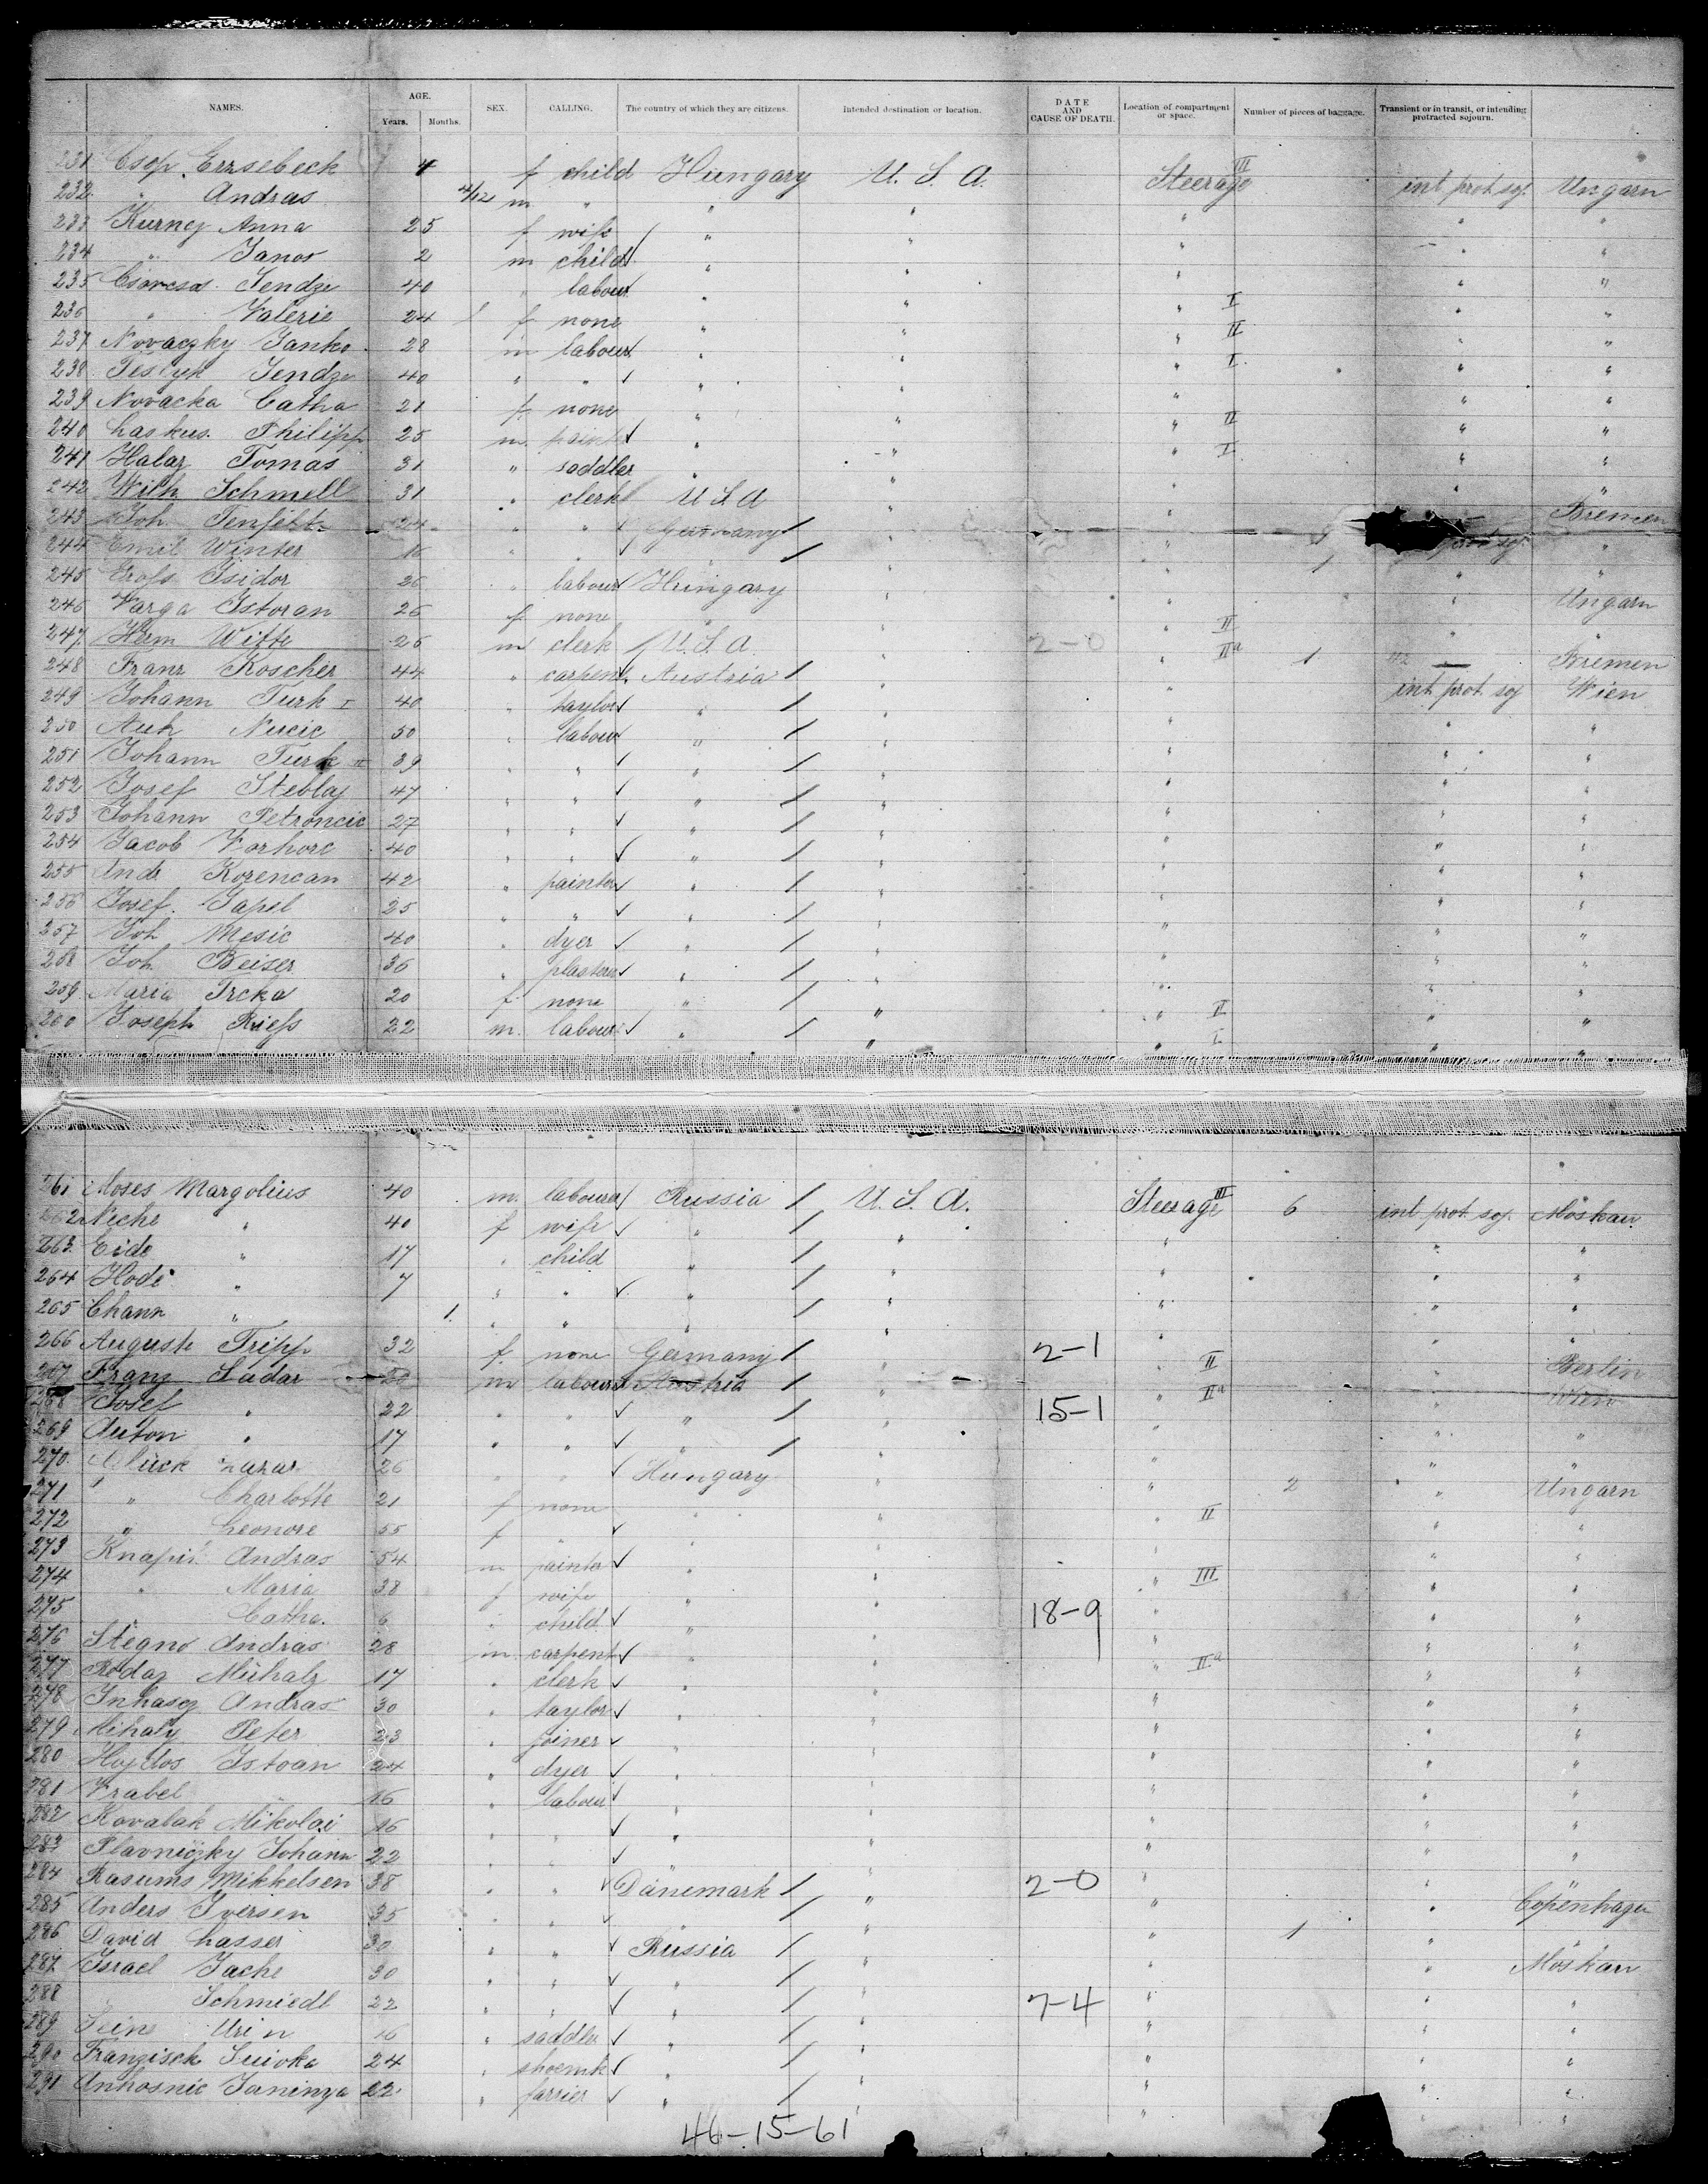 NAMES. AGE. Years. Months. SEX. CALLING. The country of which they are citizens. Intended destination or location. DATE AND CAUSE OF DEATH. Location of compartment or space. Number of pieces of baggage. Transient or in transit, or intending protracted sojourn.
231 Csop Erzsebeck 4 f child Hungary U. S. A. Steerage III int prot soj. Ungarn
232 " Andras 4/12 m " " " " " "
233 Kurney Anna 25 f wife " " " " "
234 " Janos 2 m child " " " " "
235 Csorcsos Jendze 40 " labour " " " I " "
236 " Valerie 24 f none " " " II " "
237 Novaczky Janko 28 m labour " " " I " "
238 Jendze 40 " " " " " " "
239 Novacka Catha 21 f none " " " II " "
240 Laskus Philipp 25 m paint " " " I " "
241 Halaz Tomas 31 " saddler " " " " "
242 Wilh Schmell 31 " clerk U S A " " Bremen
243 Joh. 24 " " Germany " " 1 prot soj. "
244 Emil Winter 16 " " " " " 1 " "
245 Isidor 26 " labour Hungary " " " Ungarn
246 Varga Istoran 26 f none " " " II " "
247 Herm Witte 26 m clerk U. S. A. " 2-0 " IIa 1 Bremen
248 Franz Koscher 44 " carpent. Austria " " int prot soj Wien
249 Johann Turk I 40 " taylor " " " " "
250 Auh Nucic 50 " labour " " " " "
251 Johann Turk II 39 " " " " " " "
252 Josef Steblaj 47 " " " " " " "
253 Johann Petroncic 27 " " " " " " "
254 Jacob Vorhorc 40 " " " " " " "
255 And. Korencan 42 " painter " " " " "
256 Josef Japel 25 " " " " " " "
257 Joh Mesic 40 " dyer " " " " "
258 Joh Beiser 36 " plasterer " " " " "
259 Maria Ircka 20 f none " " " II " "
260 Joseph Riefs 22 m. labour " " " I " "
261 Moses Margolius 40 m. labourer Russia U. S. A. Steerage III 6 int prot soj. Moskau
262 Niche " 40 f wife " " " " "
263 Eide " 17 " child " " " " "
264 Hode " 7 " " " " " " "
265 Chann " 1 " " " " " " "
266 Auguste Tripp 32 f. none Germany " 2-1 " II " Berlin
267 Franz Sadar 20 m labour Austria " " IIa " Wien
268 Josef " 22 " " " " 15-1 " " "
269 Anton " 17 " " " " " " "
270 Glück Lazar 26 " " Hungary " " 2 " Ungarn
271 " Charlotte 21 f none " " " II " "
272 " Leonore 55 f " " " " " "
273 Knapik Andras 54 m painter " " " III " "
274 " Maria 38 f wife " " " " "
275 " Catha. 6 " child " " 18-9 " " "
276 Stegno Andras 28 m. carpent " " " IIa " "
277 Redaz Mihalz 17 " clerk " " " " "
278 Inhascz Andras 30 " taylor " " " " "
279 Mihaly Peter 23 " joiner " " " " "
280 Hajdos Istoan 24 " dyer " " " " "
281 Vrabel " 16 " labour " " " " "
282 Kovalak Mikolai 16 " " " " " " "
283 Plavniczky Johann 22 " " " " " " "
284 Rasums Mikkelsen 38 " " Dänemark " 2-0 " " Copenhagen
285 Anders Iversen 35 " " " " " 1 " "
286 David Lasser 30 " " Russia " " " Moskau
287 Israel Jache 30 " " " " " " "
288 " Schmiedt 22 " " " " 7-4 " " "
289 Urin 16 " saddler " " " " "
290 Franzisck Suivka 24 " shoemk " " " " "
291 Anhosnic Janinza 22 " farrier " " " " "
46-15-61